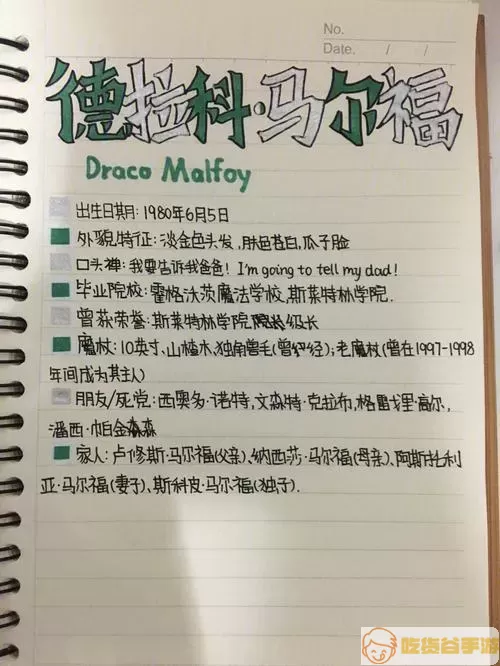 No.
Date. / /
德拉科·马尔福
Draco Malfoy
出生日期: 1980年6月5日
外貌特征: 淡金色头发,肤色苍白,瓜子脸
口头禅: 我要告诉我爸爸! I'm going to tell my dad!
毕业院校: 霍格沃茨魔法学校,斯莱特林学院.
曾获荣誉: 斯莱特林学院 级长
魔杖: 10英寸,山楂木,独角兽毛(曾经);老魔杖(曾在1997-1998
年间成为其主人)
朋友/死党: 西奥多·诺特,文森特·克拉布,格雷戈里·高尔,
潘西·帕金森
家人: 卢修斯·马尔福(父亲)、纳西莎·马尔福(母亲)、阿斯托利
亚·马尔福(妻子)、斯科皮·马尔福(独子).
吃货谷手游